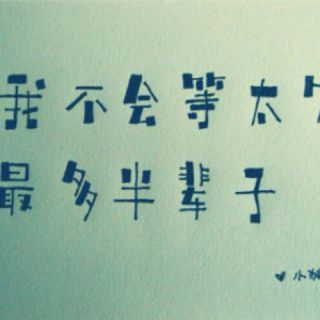 我不会等太
最多半辈子
♥小